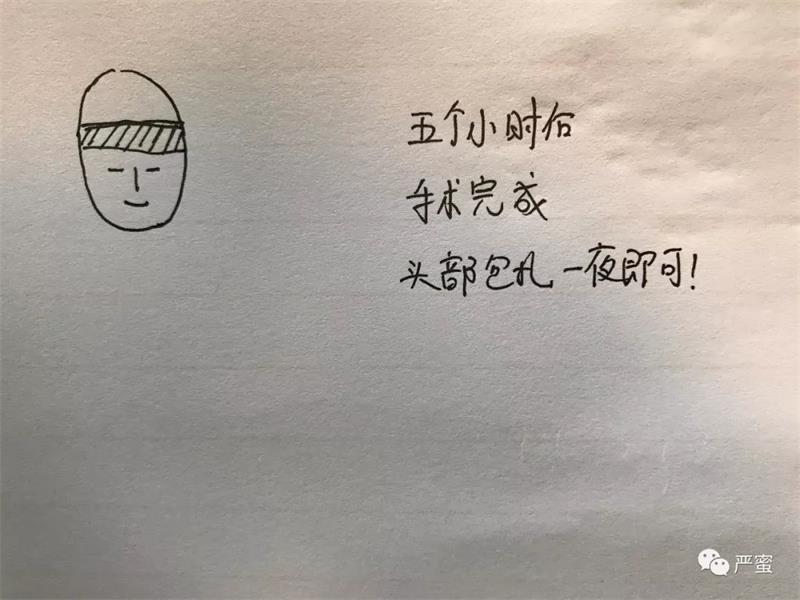 五个小时后
手术完成
头部包扎一夜即可!
严蜜